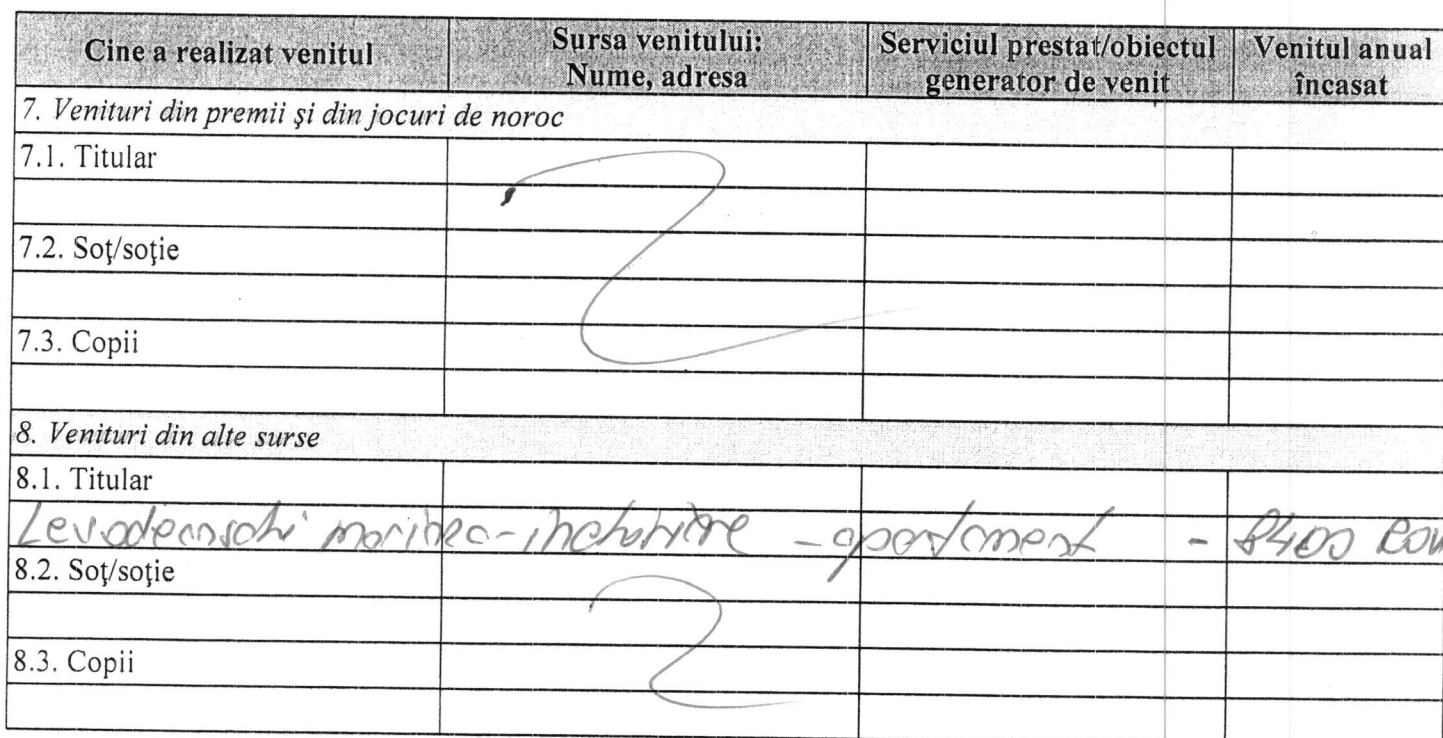 Cine a realizat venitul Sursa venitului: Nume, adresa Serviciul prestat/obiectul generator de venit Venitul anual încasat
7. Venituri din premii şi din jocuri de noroc
7.1. Titular
7.2. Soţ/soţie
7.3. Copii
8. Venituri din alte surse
8.1. Titular
- apartament - 8400 RON
8.2. Soţ/soţie
8.3. Copii